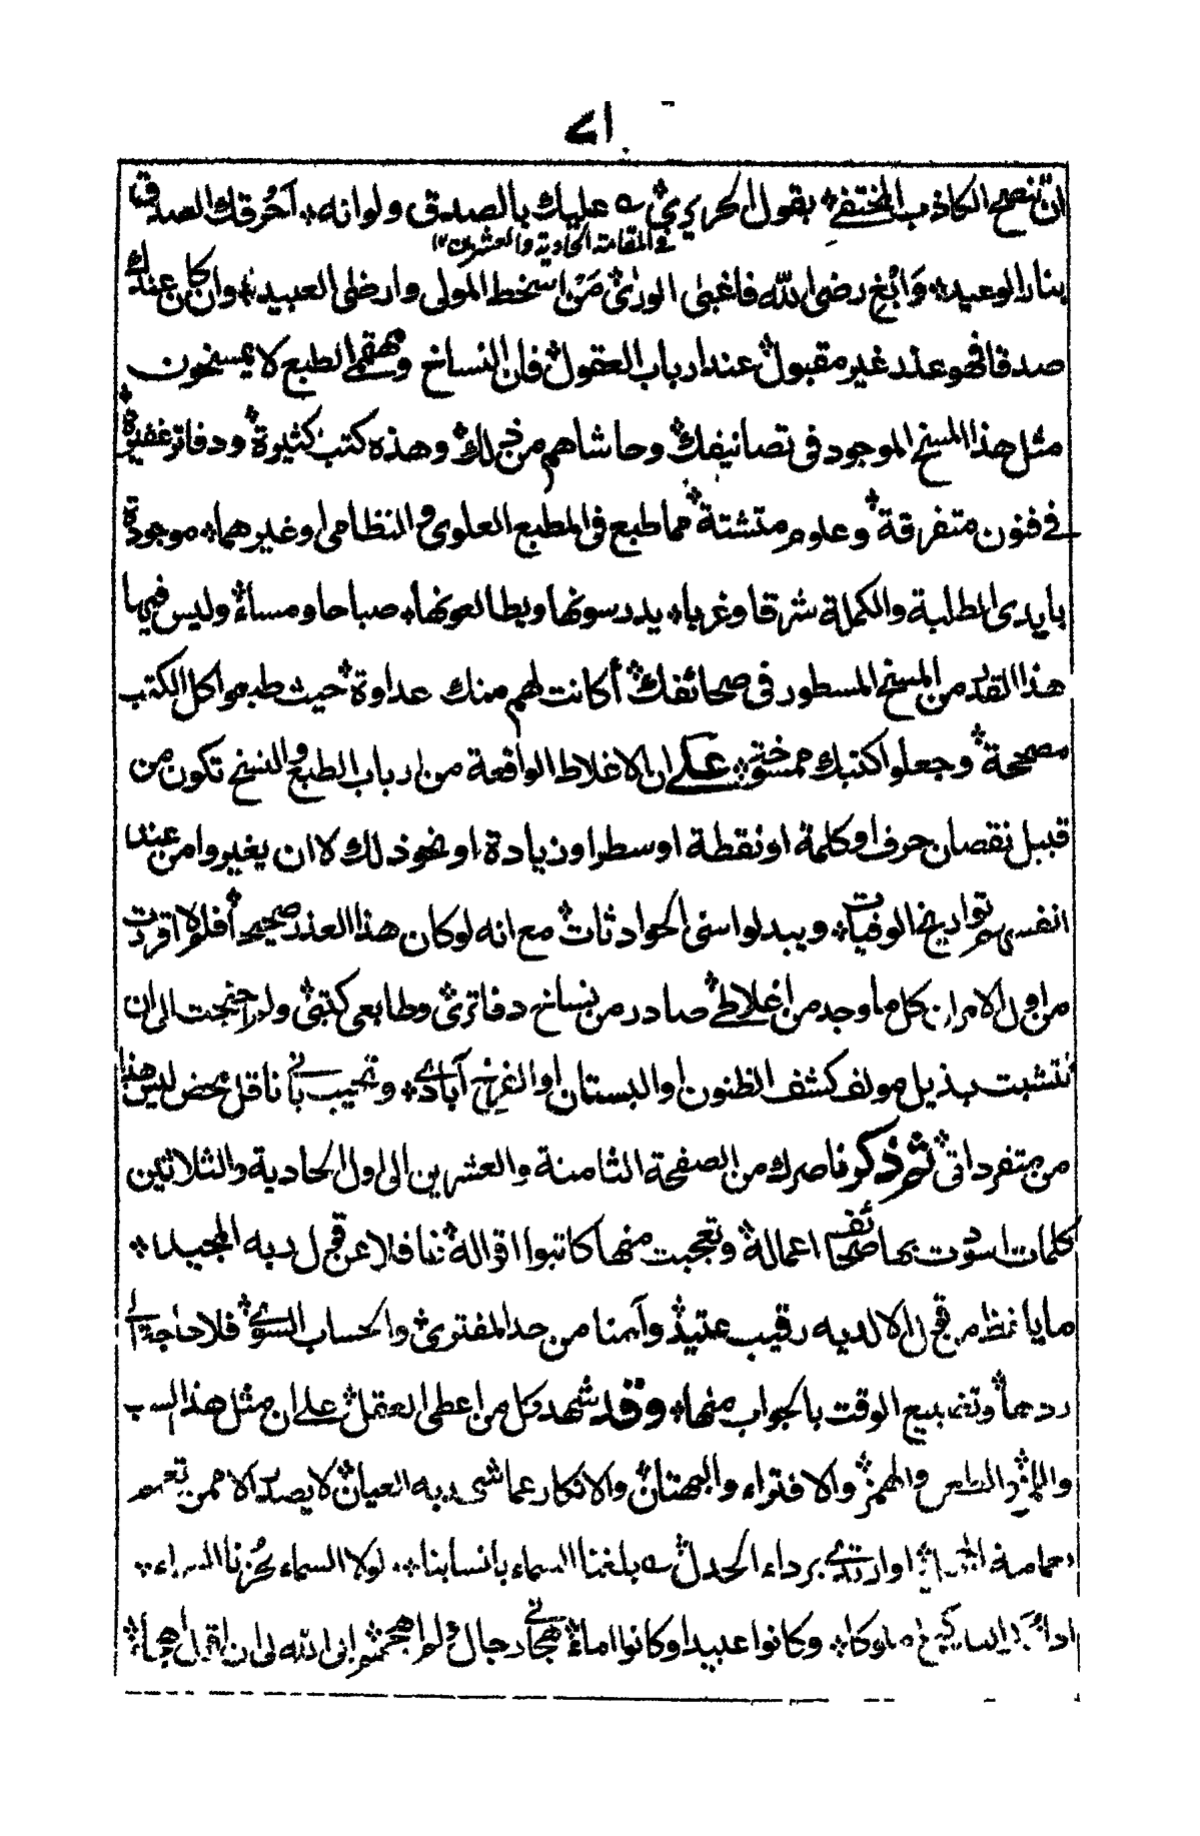 ٨١
ان تنصح الكاذب المختفے؞ بقول الحريري؞ ے عليك بالصدق ولوانه؞ احرقك الصدق
فے المقامة الحادية والعشرين ١٢
بنار الوعيد؞ وابغ رضى الله فاغبى الورى؞ من اسخط المولى وارضى العبيد؞ وان كان عندك
صدقا فهو عند غير مقبول؞ عند ارباب العقول؞ فان النساخ ومهتمے الطبع لا يمسخون
مثل هذا المسخ الموجود فى تصانيفك؞ وحاشاهم من ذلك؞ وهذه كتب كثيرة؞ ودفاتر غفيرة؞
فے فنون متفرقة؞ وعلوم متشتة؞ مما طبع فى المطبع العلوى والنظامى وغيرهما؞ موجودة
بايدى الطلبة والكملة شرقا وغربا؞ يدرسونها ويطالعونها؞ صباحا ومساء؞ وليس فيها
هذا القدر من المسخ المسطور فى صحائفك؞ أكانت لهم منك عداوة؞ حيث طبعوا كل الكتب
مصححة؞ وجعلوا كتبك ممسوخة؞ علے ان الاغلاط الواقعة من ارباب الطبع والنسخ تكون من
قبيل نقصان حرف او كلمة او نقطة او سطر او زيادة او نحو ذلك لا ان يغيروا من عند
انفسهم تواريخ الوفيات؞ ويبدلوا سنى الحوادثات؞ مع انه لو كان هذا العذر صحيحا؞ أفلم لا اقررت
من اول الامر ان كل ما وجد من اغلاطے؞ صادر من نساخ دفاترى؞ وطابعى كتبى؞ ولم احتجت الى ان
تتشبت بذيل مولف كشف الظنون او البستان او الفرخ آبادے؞ وتجيب بانے ناقل محض ليس هذا
من متفرداتى؞ ثم ذكر ناصرك من الصفحة الثامنة والعشرين الى اول الحادية والثلاثين
كلمات اسودت بها صحائف اعماله؞ وتعجبت منها كاتبوا اقواله؞ غافلا عن قول ربه المجيد؞
ما يلفظ من قول الا لديه رقيب عتيد؞ وآمنا من حد المفترى؞ والحساب السوى؞ فلا حاجة الے
ردها؞ وتضييع الوقت بالجواب منها؞ وقد شهد كل من اعطى العقل؞ علے ان مثل هذا السب
واللمز؞ والطعن والهمز؞ والافتراء والبهتان؞ والانكار عما شهد به العيان؞ لا يصدر الا ممن تعمم
بعمامة او ارتدے برداء الجدل؞ ے بلغنا السماء بانسابنا؞ لولا السماء لحزنا السماء؞
اذا ملوكا؞ وكانوا عبيدا وكانوا اماء؞ هجانے رجال ولم اهجهم ابى الله لى ان اقول هجاء؞